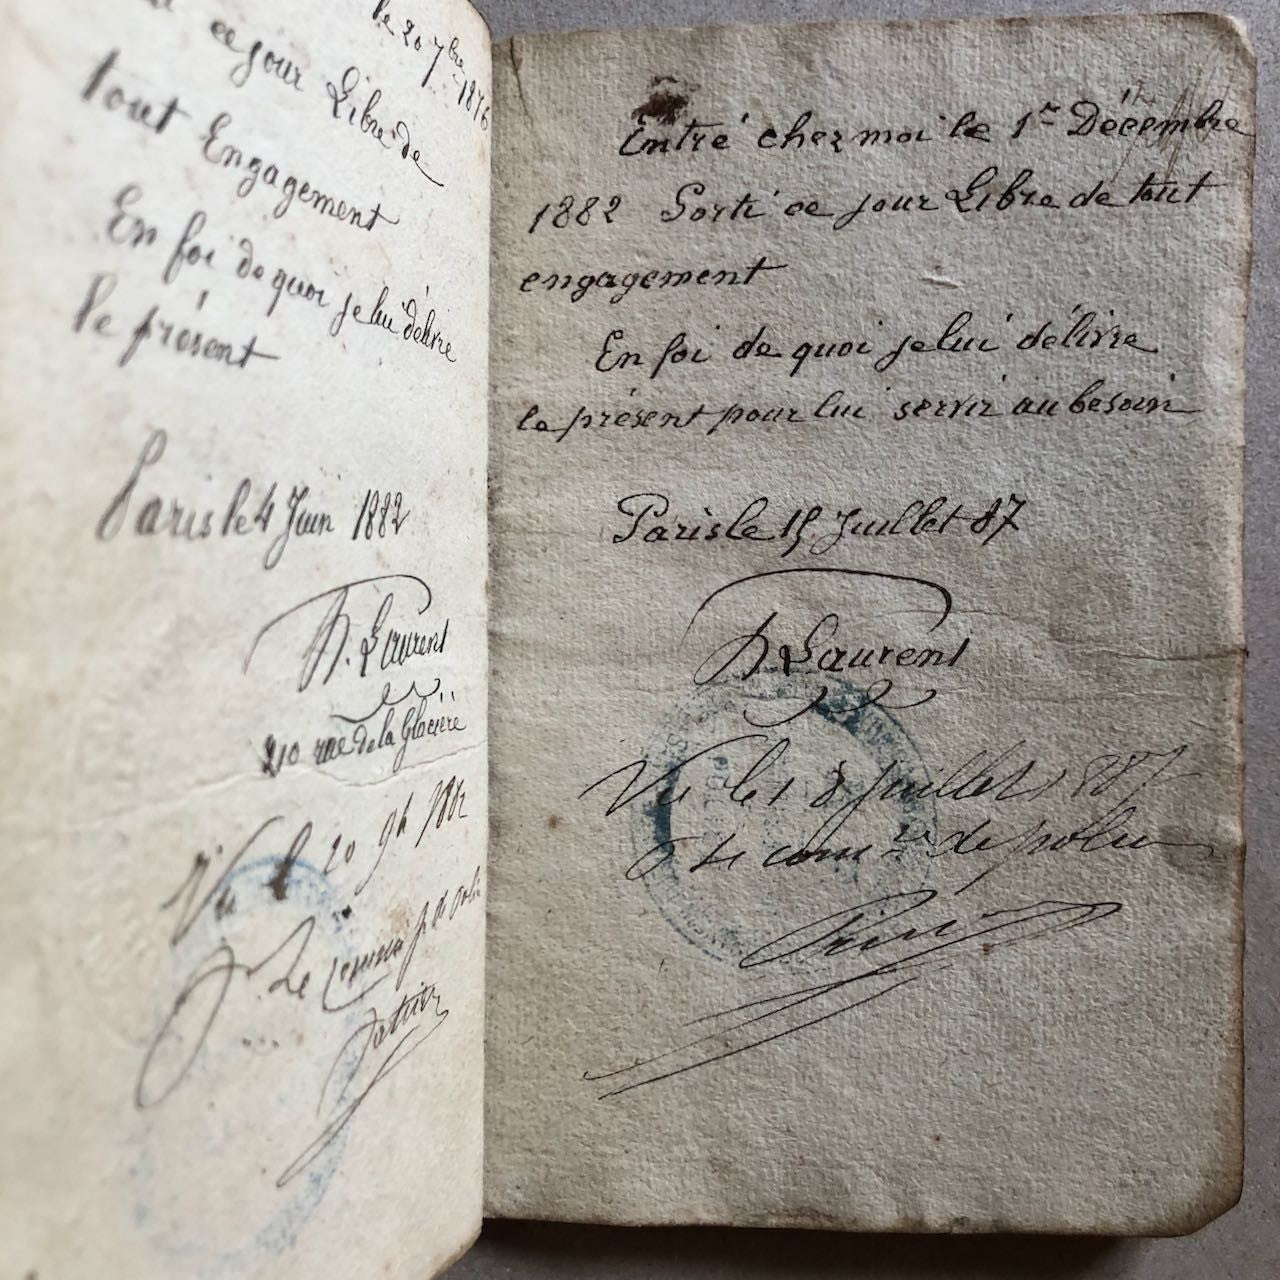 le 20 7bre 1876
ce jour Libre de
tout Engagement
En foi de quoi je lui délivre
le présent
Paris le 4 Juin 1882
H. Laurent
210 rue de la Glacière
Vu le 20 9h 1882
Le comme p de police
Entré chez moi le 1er Décembre
1882 Sorti ce jour Libre de tout
engagement
En foi de quoi je lui délivre
le présent pour lui servir au besoin
Paris le 15 Juillet 87
H Laurent
Vu le 18 juillet 1887
Le comre de police